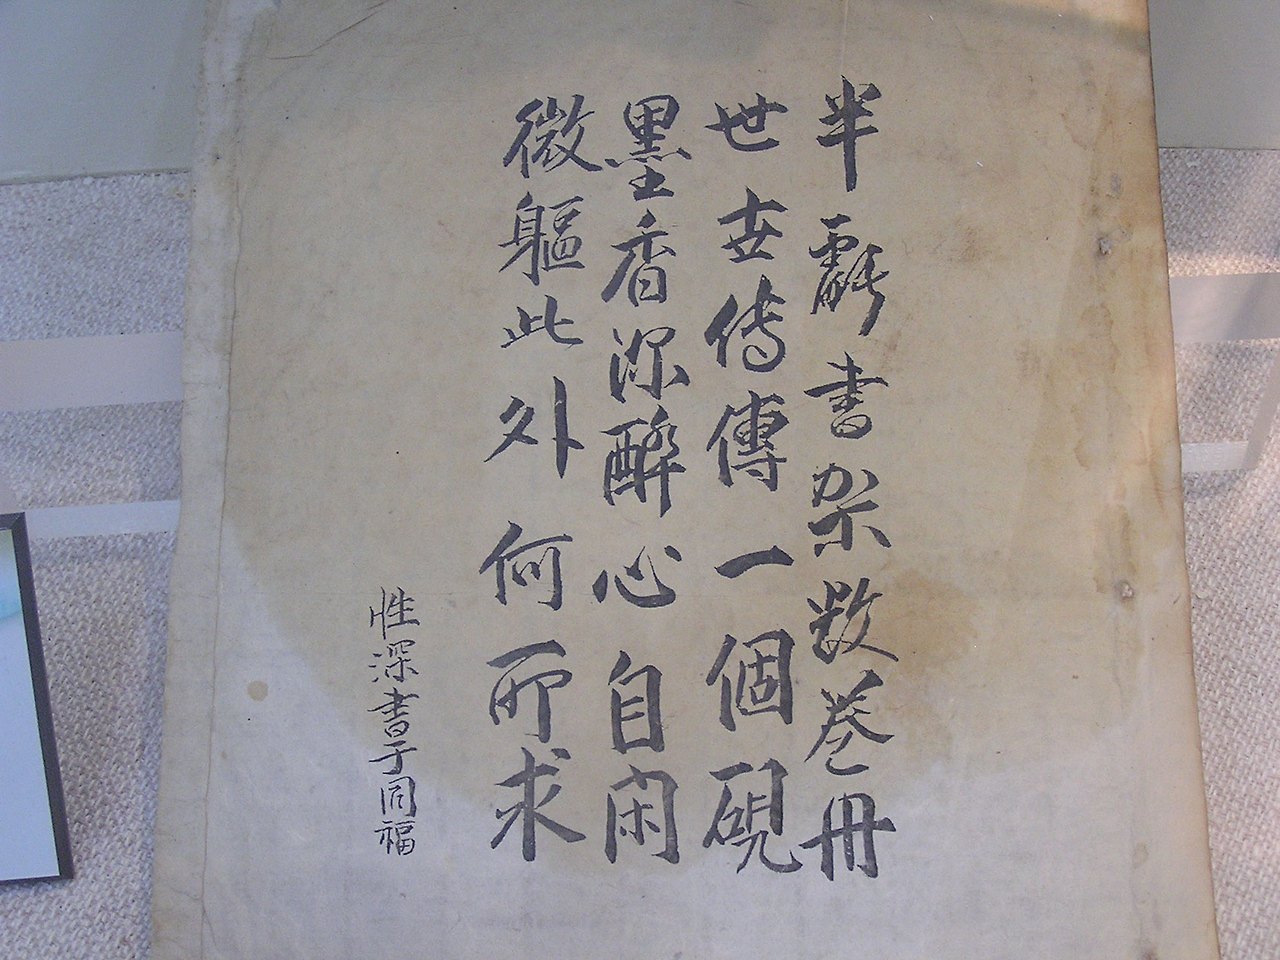 半虧書架数卷冊
世世传傳一個硯
墨香深醉心自闲
微軀此外何所求
性深書于同福